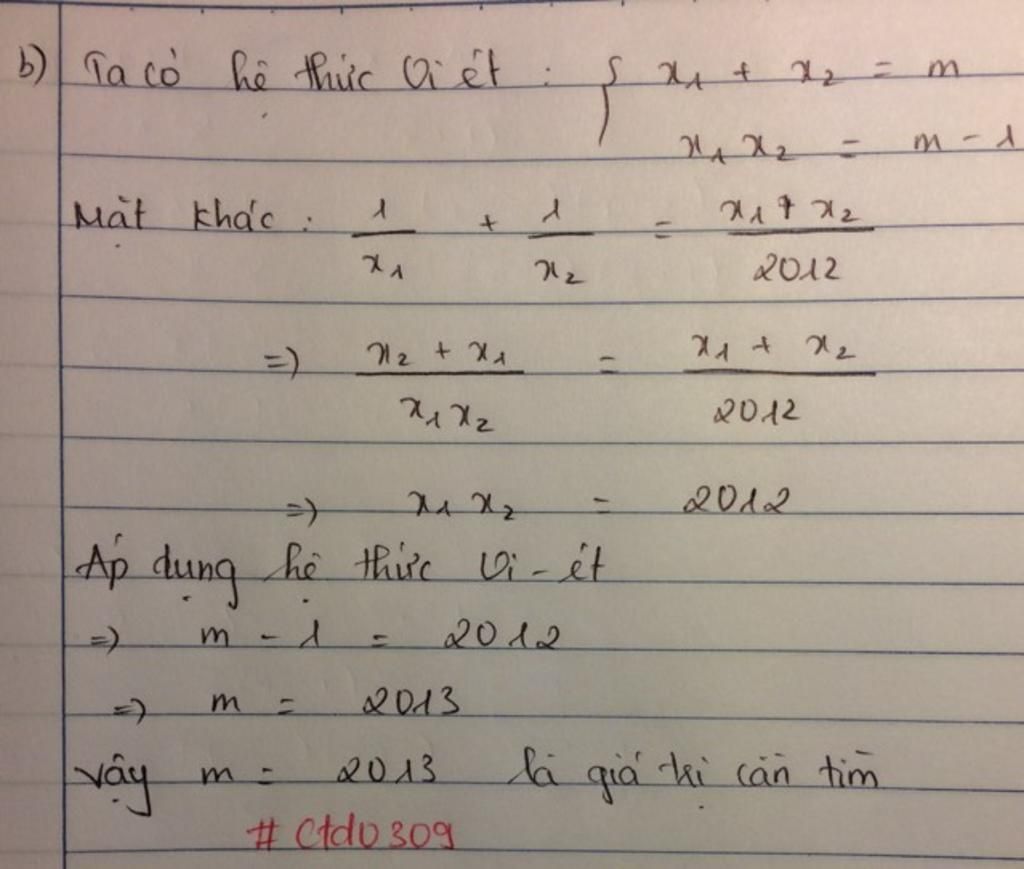 b) Ta có hệ thức Vi ét : { x₁ + x₂ = m
x₁ x₂ = m - 1
Mặt khác : 1/x₁ + 1/x₂ = (x₁ + x₂)/2012
=> (x₂ + x₁)/(x₁x₂) = (x₁ + x₂)/2012
=> x₁ x₂ = 2012
Áp dụng hệ thức Vi-ét
=> m - 1 = 2012
=> m = 2013
Vậy m = 2013 là giá trị cần tìm
# Ctd0309